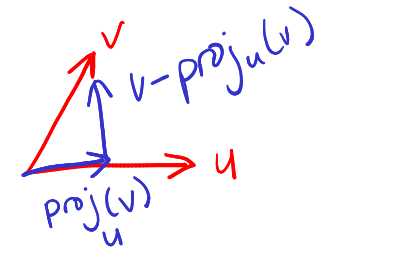 v
v-proj_u(v)
u
proj_u(v)